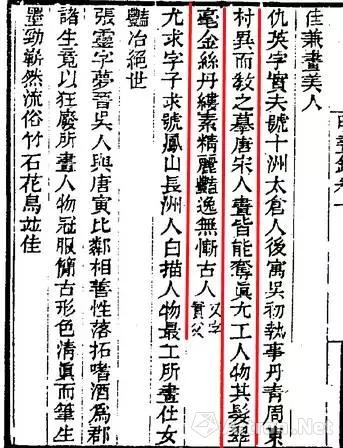 佳兼畫美人
仇英字實夫號十洲太倉人後寓吳初執事丹青周東
村異而敎之摹唐宋人畫皆能奪眞尤工人物其髮翠
毫金絲丹縷素精麗豔逸無慚古人又字實父
尤求字子求號鳳山長洲人白描人物最工所畫仕女
豔冶絕世
張靈字夢晉吳人與唐寅比鄰相善性落拓嗜酒爲郡
諸生竟以狂廢所畫人物冠服簡古形色清眞而筆生
墨勁嶄然流俗竹石花鳥竝佳